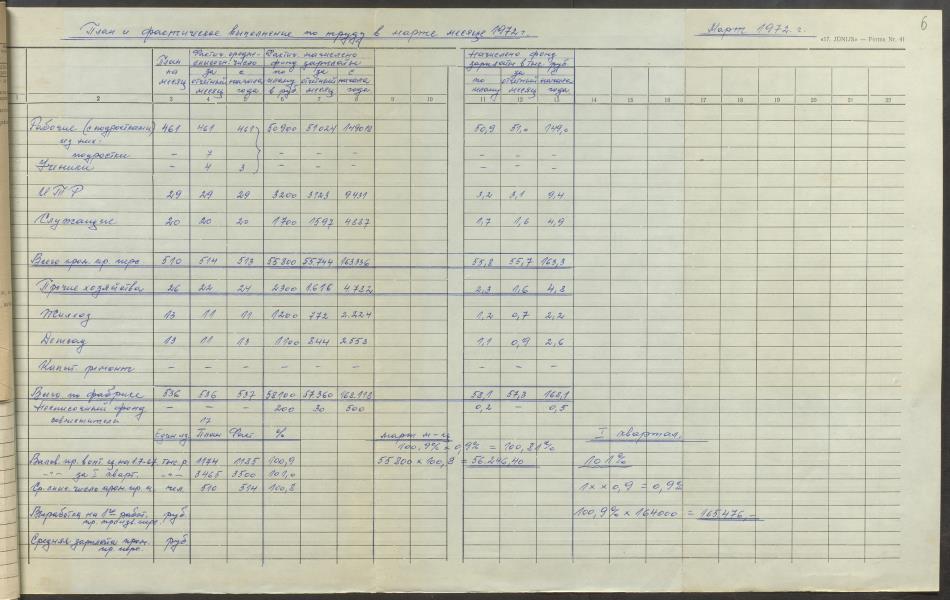 6
План и фактическое выполнение по труду в марте месяце 1972 г. Март 1972 г.
«17. JŪNIJS» — Forma Nr. 41
План на месяц
за отчётный месяц с начала года
фонд по плану в руб. за отчётный месяц с начала года
Начислено фонд зарплаты в тыс. руб.
по плану за отчётный месяц с начала года
1 2 3 4 5 6 7 8 9 10 11 12 13 14 15 16 17 18 19 20 21 22
Рабочие (с подростками) 461 461 461 50900 51024 149018 50,9 51,0 149,0
из них:
подростки – 7 – – – – – –
Ученики – 4 3 – – – – – –
ИТР 29 29 29 3200 3123 9431 3,2 3,1 9,4
Служащие 20 20 20 1700 1597 4887 1,7 1,6 4,9
Всего пром. пр. перс. 510 514 513 55800 55744 163336 55,8 55,7 163,3
Прочие хозяйства 26 22 24 2300 1616 4782 2,3 1,6 4,8
Жилхоз 13 11 11 1200 772 2.224 1,2 0,7 2,2
Детсад 13 11 13 1100 844 2553 1,1 0,9 2,6
Капит. ремонт – – – – – – – – –
Всего по фабрике 536 536 537 58100 57360 168.118 58,1 57,3 168,1
Несписочный фонд – – – 200 30 500 0,2 – 0,5
совместители 17
Един. из. План Факт % март м-ц I квартал.
100.9% х 0,9% = 100,81%
Валов. пр. в опт. ц. на 1.7-67. тыс. р. 1174 1185 100,9 55800 х 100,8 = 56.246,40 101%
-"- за I кварт. -"- 3465 3500 101,0
Ср. спис. число пром. пр. п. чел. 510 514 100,8 1 х х 0,9 = 0,9%
Выработка на 1го работ. руб. 100,9% х 164000 = 165.476,-
пр. произв. перс.
Средняя зарплата пром. руб
пр. перс.